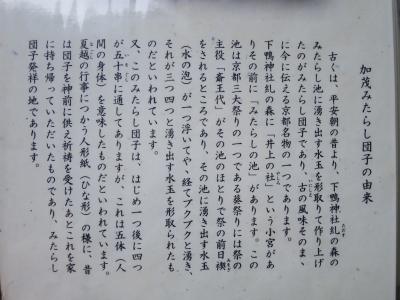 加茂みたらし団子の由来
古くは、平安朝の昔より、下鴨神社糺の森の
みたらし池に湧き出す水玉を形取りて作り上げ
たのがみたらし団子であり、古の風味そのまゝ
に今に伝える京都名物の一つであります。
下鴨神社糺の森に「井上の社」という小宮があ
りその前に「みたらしの池」があります。この
池は京都三大祭りの一つである葵祭りには祭の
主役「斎王代」がその池のほとりで祭の前日禊
をされるところであり、その池に湧き出す水玉
(水の泡)が一つ浮いてや、経てブクブクと湧き、
それが三つ四つと湧き出す水玉を形取られたも
のだといわれています。
又、このみたらし団子は、はじめ一つ後に四つ
が五十串に通してありますが、これは五体(人
間の身体)を意味したものだといわれています。
夏越の行事につかう人形紙(ひな形)の様に、昔
は団子を神前に供え祈祷を受けたあとこれを家
に持ち帰っていただいたものであり、みたらし
団子発祥の地であります。